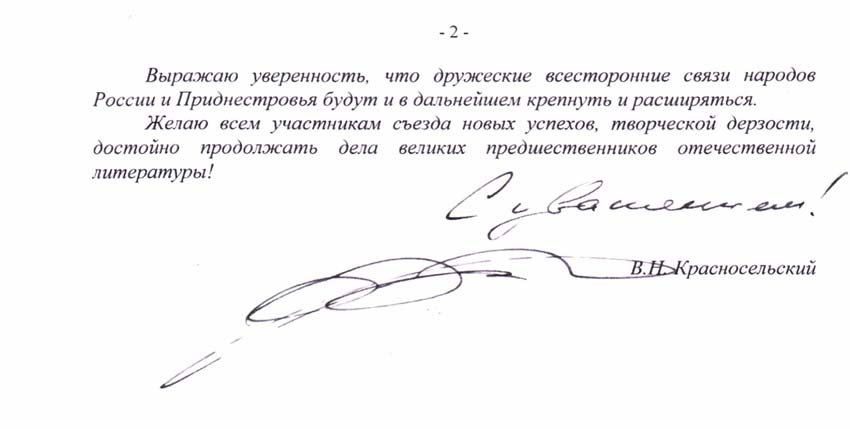 - 2 -
Выражаю уверенность, что дружеские всесторонние связи народов
России и Приднестровья будут и в дальнейшем крепнуть и расширяться.
Желаю всем участникам съезда новых успехов, творческой дерзости,
достойно продолжать дела великих предшественников отечественной
литературы!
С уважением!
В.Н. Красносельский